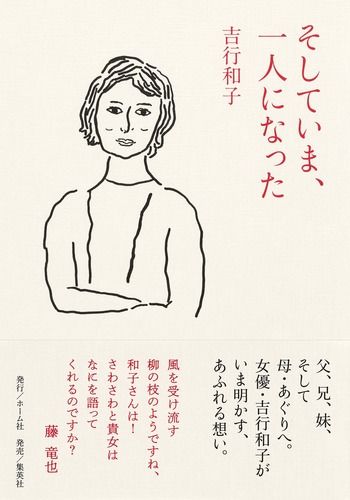 そしていま、
一人になった
吉行和子
父、兄、妹、
そして
母・あぐりへ。
女優・吉行和子が
いま明かす、
あふれる想い。
風を受け流す
柳の枝のようですね、
和子さんは！
さわさわと貴女は
なにを語って
くれるのですか？
藤 竜也
発行／ホーム社 発売／集英社